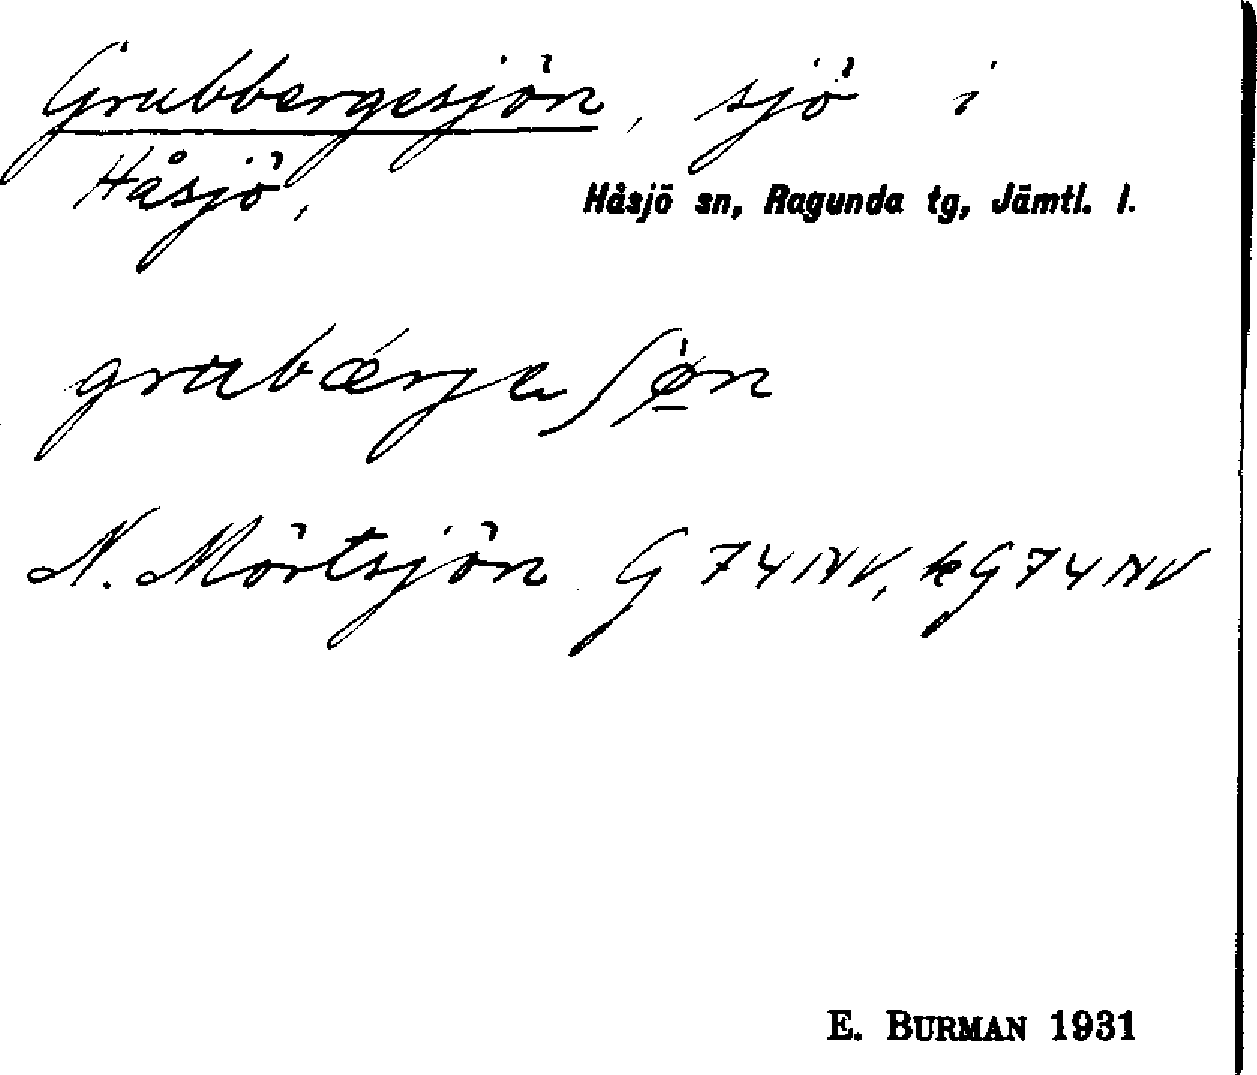 Grubbergesjön, sjö i
Håsjö,
Håsjö sn, Ragunda tg, Jämtl. l.
grubǽrjeʃøn
N. Mörtsjön G 74 NV, kG 74 NV
E. BURMAN 1931